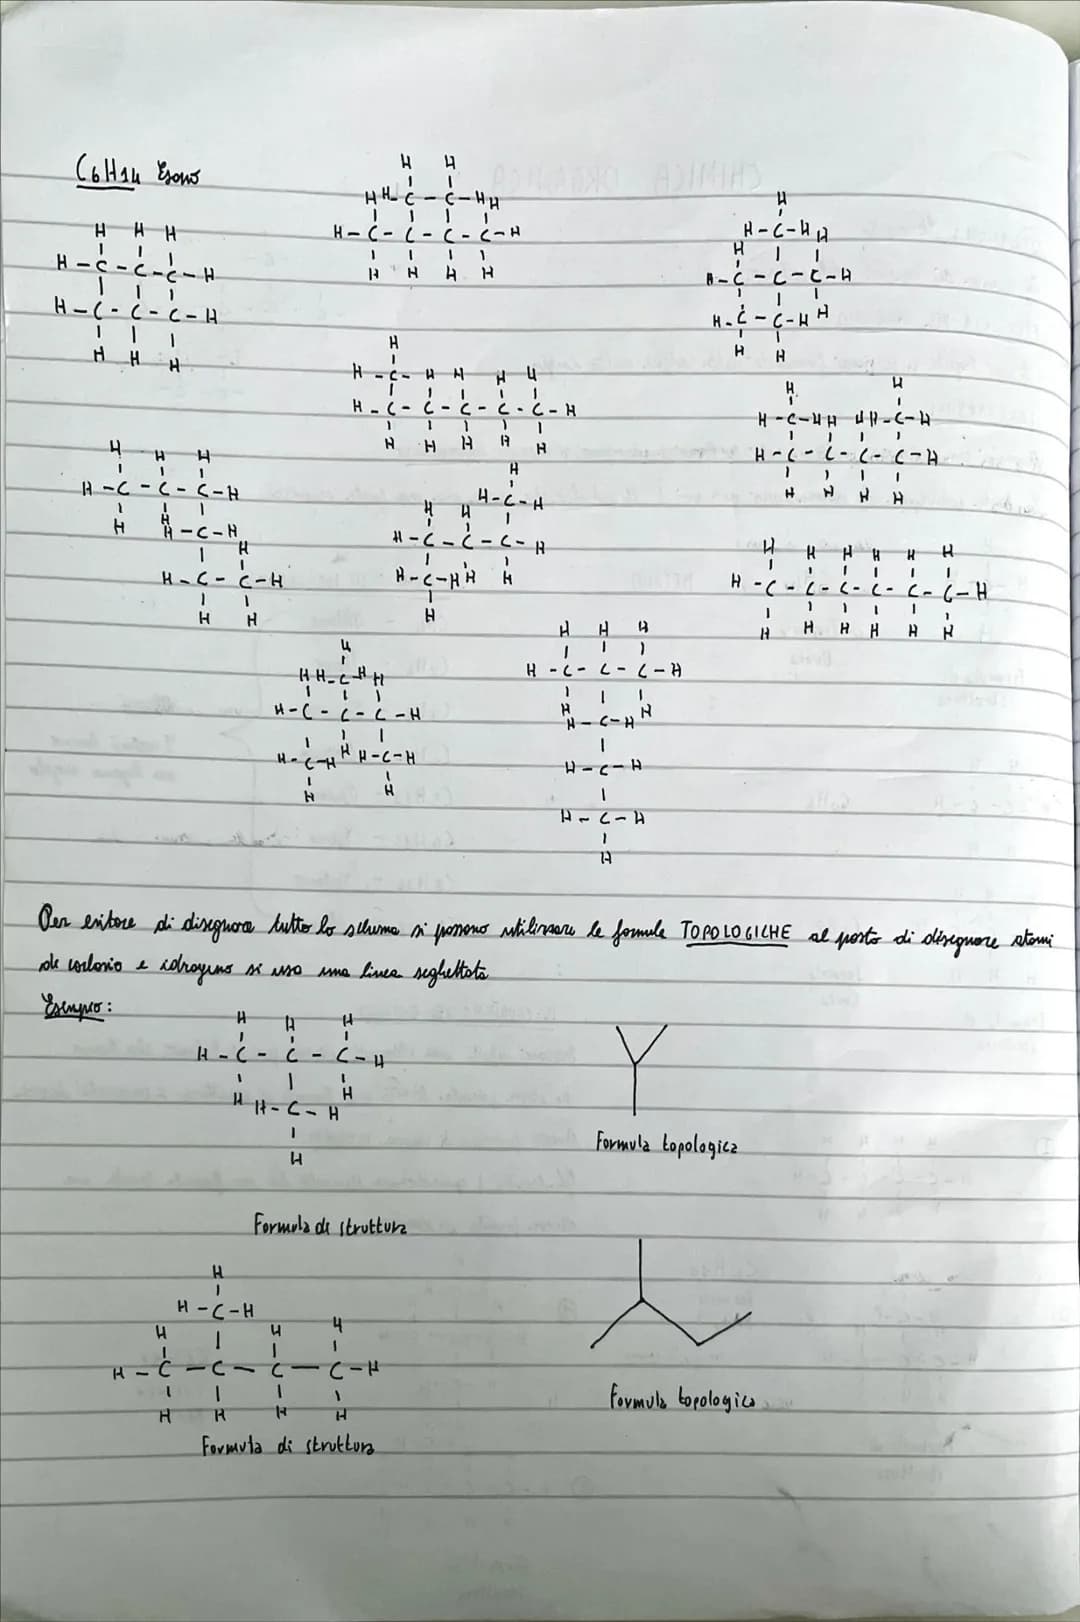 C6H14 Esano
H H H
H-C-C-C-H
H-C-C-C-H
H H H
H H
HH-C-C-HH
H-C-C-C-C-H
H H H H
H
H-C-H H
H
H-C-C-C-H
H-C-C-H H
H H
H
H-C- H H H H
H-C-C-C-C-C-H
H H H H H
H H
H-C-HH HH-C-H
H-C-C-C-C-H
H H H H
H H H
H-C-C-C-H
H H
H-C-H
H
H-C-C-H
H H
H
H-C-H
H H
H-C-C-C-H
H-C-HH H
H
H H H H H H
H-C-C-C-C-C-C-H
H H H H H H
H
HH-C-HH
H-C-C-C-H
H-C-H H H-C-H
H H
H H H
H-C-C-C-H
H H
H-C-H
H-C-H
H-C-H
H
Per evitare di disegnare tutto lo schema si possono utilizzare le formule TOPOLOGICHE al posto di disegnare atomi
di carbonio e idrogeno si usa una linea seghettata
Esempio:
H H H
H-C-C-C-H
H H
H-C-H
H
Formula topologica
Formula di struttura
H
H-C-H
H H H
H-C-C-C-C-H
H H H H
Formula topologica
Formula di struttura